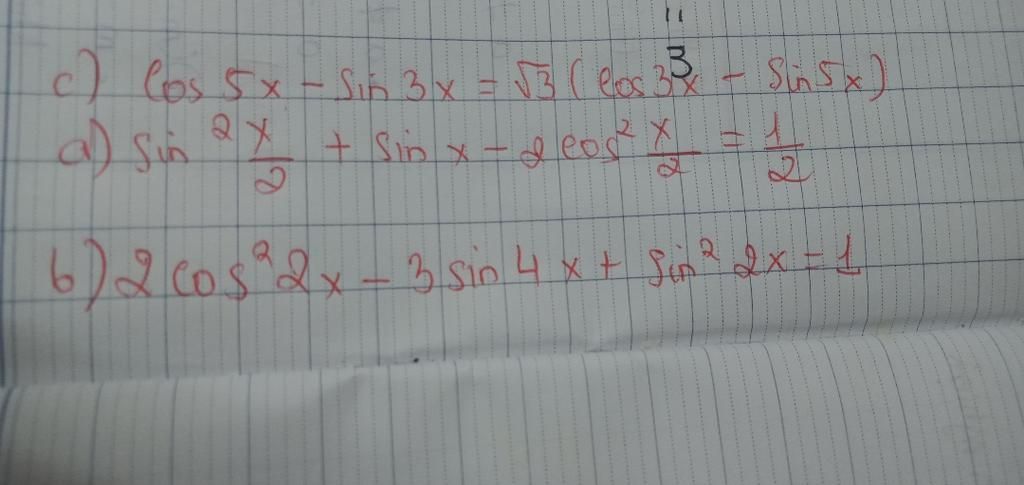 c) cos 5x - sin 3x = √3 (cos 3x - sin 5x)
a) sin² x/2 + sin x - 2 cos² x/2 = 1/2
b) 2 cos² 2x - 3 sin 4x + sin² 2x = 1